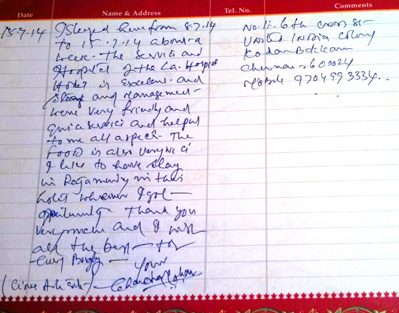 Date Name & Address Tel. No. Comments
15.7.14 I stayed here from 8.7.14
to 15.7.14 about a
week. The Service and
Hospital of the
Hotel is Excellent. and
and Management
were very friendly and
quick service and helped
to me all aspect. The
Food is also very nice
I like to have stay
in Rajamundry in this
hotel whenever I got
opportunity. Thank you
very much and I wish
all the best for
Your
No. 11. 6th cross st
United India Colony
Kodambakkam
Chennai 600024
Mobile 9704993334